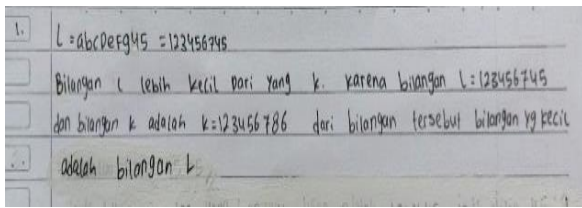 1. L = abcDeFg45 = 123456745
Bilangan L lebih kecil Dari Yang K. Karena bilangan L = 123456745
dan bilangan K adalah K = 123456786 dari bilangan tersebut bilangan yg kecil
adalah bilangan L